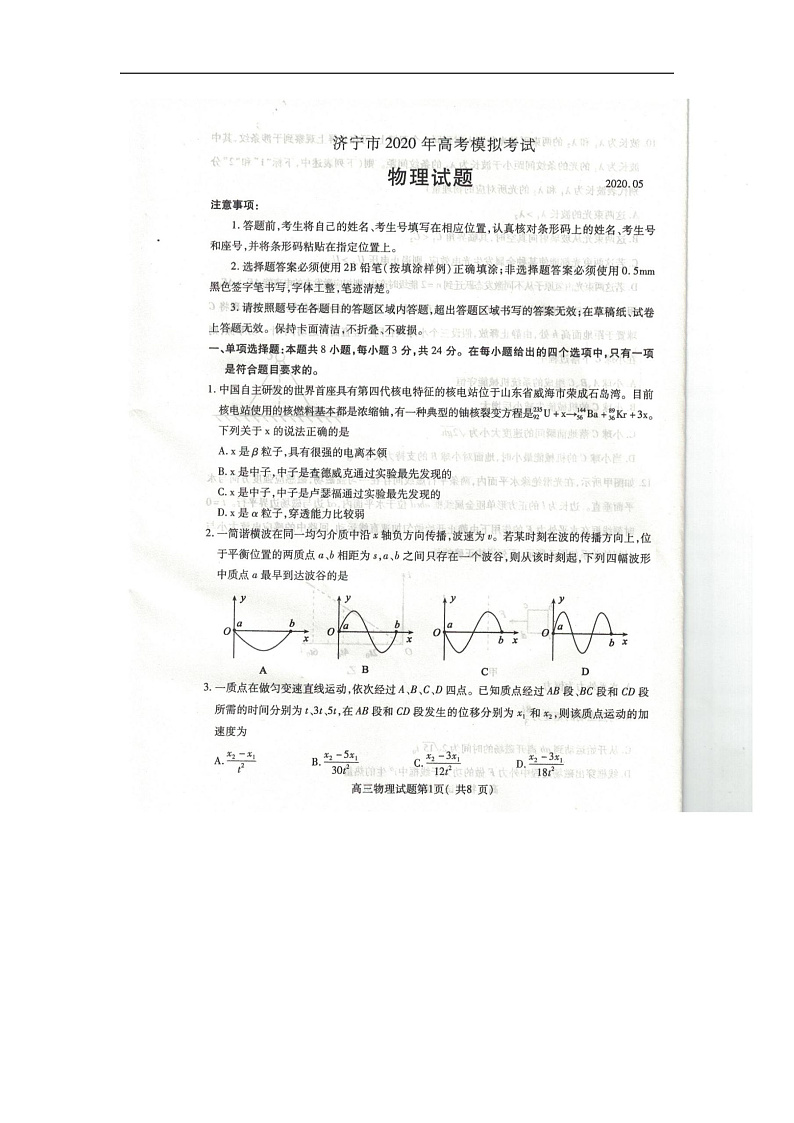 济宁市 2020 年高考模拟考试
物理试题
2020.05
注意事项：
1.答题前,考生将自己的姓名、考生号填写在相应位置,认真核对条形码上的姓名、考生号
和座号,并将条形码粘贴在指定位置上。
2.选择题答案必须使用 2B 铅笔(按填涂样例)正确填涂;非选择题答案必须使用 0.5mm
黑色签字笔书写,字体工整,笔迹清楚。
3.请按照题号在各题目的答题区域内答题,超出答题区域书写的答案无效;在草稿纸、试卷
上答题无效。保持卡面清洁,不折叠、不破损。
一、单项选择题:本题共 8 小题,每小题 3 分,共 24 分。在每小题给出的四个选项中,只有一项
是符合题目要求的。
1.中国自主研发的世界首座具有第四代核电特征的核电站位于山东省威海市荣成石岛湾。目前
核电站使用的核燃料基本都是浓缩铀,有一种典型的铀核裂变方程是²³⁵₉₂U + x→¹⁴⁴₅₆Ba + ⁸⁹₃₆Kr + 3x。
下列关于 x 的说法正确的是
A. x 是 β 粒子,具有很强的电离本领
B. x 是中子,中子是查德威克通过实验最先发现的
C. x 是中子,中子是卢瑟福通过实验最先发现的
D. x 是 α 粒子,穿透能力比较弱
2.一简谐横波在同一均匀介质中沿 x 轴负方向传播,波速为 v。若某时刻在波的传播方向上,位
于平衡位置的两质点 a、b 相距为 s,a、b 之间只存在一个波谷,则从该时刻起,下列四幅波形
中质点 a 最早到达波谷的是
y y y y
O a b x O a b x O a b x O a b x
A B C D
3.一质点在做匀变速直线运动,依次经过 A、B、C、D 四点。已知质点经过 AB 段、BC 段和 CD 段
所需的时间分别为 t、3t、5t,在 AB 段和 CD 段发生的位移分别为 x₁ 和 x₂,则该质点运动的加
速度为
A. (x₂ - x₁)/t² B. (x₂ - 5x₁)/30t² C. (x₂ - 3x₁)/12t² D. (x₂ - 3x₁)/18t²
高三物理试题第1页( 共8 页)